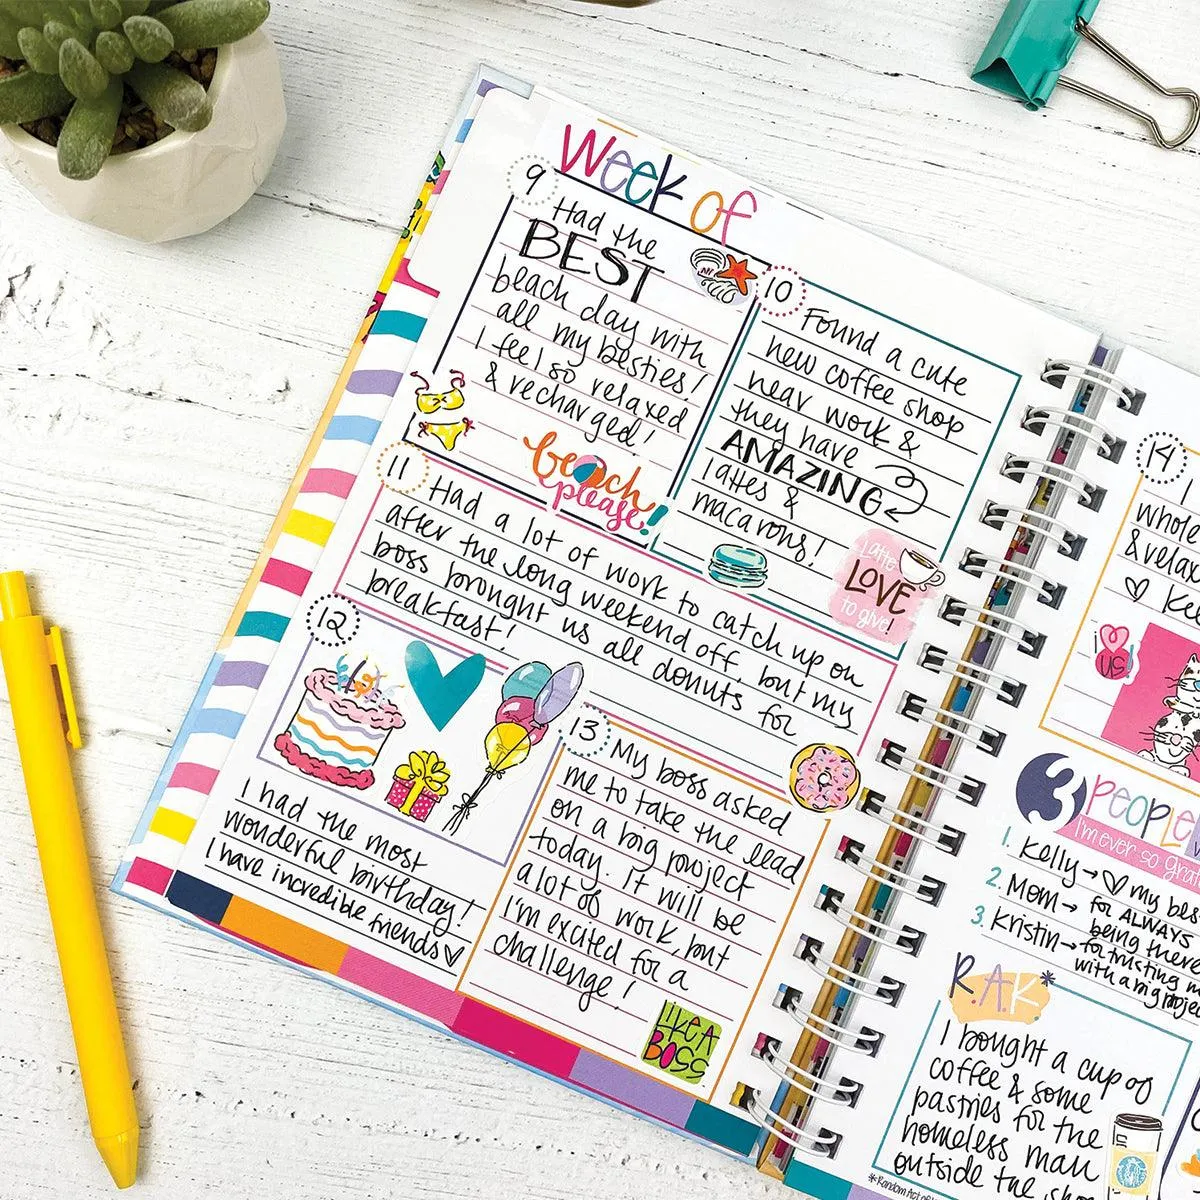 Week of
9
Had the
BEST
beach day with
all my besties!
I feel so relaxed
& recharged!
beach
please!
10
Found a cute
new coffee shop
near work &
they have
AMAZING
lattes &
macarons!
Latte
LOVE
to give!
11
Had a lot of work to catch up on
after the long weekend off, but my
boss brought us all donuts for
breakfast!
12
I had the most
wonderful birthday!
I have incredible friends
13
My boss asked
me to take the lead
on a big project
today. It will be
a lot of work, but
I'm excited for a
challenge!
LIKE A
BOSS
14
I
whole
& relax
3 PEOPLE
I'm ever so grat
1. Kelly → my bes
2. Mom → for ALWAYS
being there
3. Kristin → for trusting m
with a big projec
R.A.K.*
I bought a cup of
coffee & some
pastries for the
homeless man
outside the sho
*Random Act of